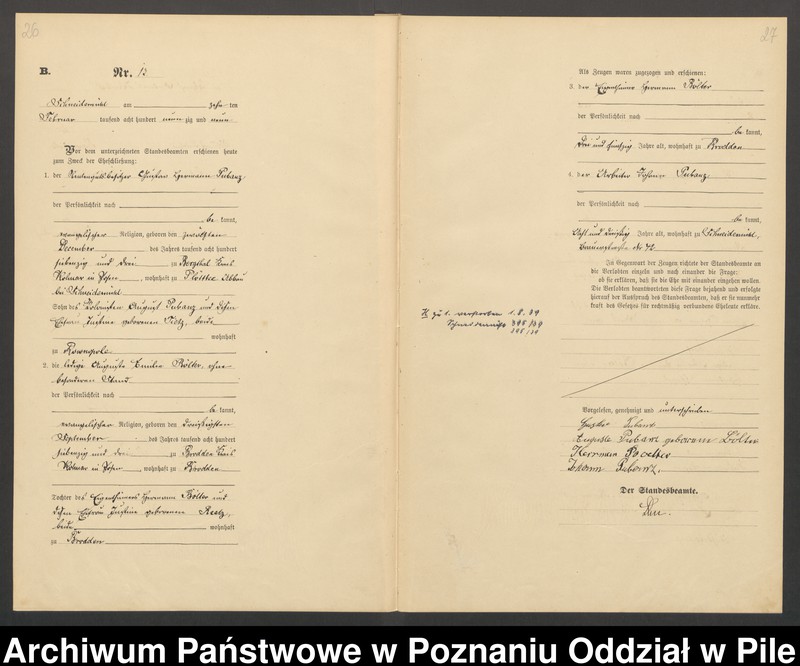 26
B.
Nr. 13
Schneidemühl am zehn ten
Februar tausend acht hundert neun zig und neun
Vor dem unterzeichneten Standesbeamten erschienen heute
zum Zweck der Eheschließung:
1. der Gustav Hermann Pubanz
der Persönlichkeit nach
be kannt,
evangelischer Religion, geboren den zwölften
December des Jahres tausend acht hundert
siebenzig und drei zu Kreis
Kolmar in Posen, wohnhaft zu Plöttke Abbau
bei Schneidemühl
Sohn des August Pubanz und dessen
Ehefrau Justine geborenen Tietz, beide
wohnhaft
zu
2. die ledige Auguste Emilie Bölter, ohne
besonderen Stand
der Persönlichkeit nach
be kannt,
evangelischer Religion, geboren den dreißigsten
September des Jahres tausend acht hundert
siebenzig und drei zu Brodden Kreis
Kolmar in Posen, wohnhaft zu Brodden
Tochter des Eigenthümers Hermann Bölter und
dessen Ehefrau Justine geborenen
beide wohnhaft
zu Brodden
27
Als Zeugen waren zugezogen und erschienen:
3. der Eigenthümer Hermann Bölter
der Persönlichkeit nach
be kannt,
drei und fünfzig Jahre alt, wohnhaft zu Brodden
4. der Arbeiter Johann Pubanz
der Persönlichkeit nach
be kannt,
acht und dreißig Jahre alt, wohnhaft zu Schneidemühl,
No 72.
In Gegenwart der Zeugen richtete der Standesbeamte an
die Verlobten einzeln und nach einander die Frage:
ob sie erklären, daß sie die Ehe mit einander eingehen wollen.
Die Verlobten beantworteten diese Frage bejahend und erfolgte
hierauf der Ausspruch des Standesbeamten, daß er sie nunmehr
kraft des Gesetzes für rechtmäßig verbundene Eheleute erkläre.
zu 1. verstorben 1. 8. 39
Schneidemühl 398/39
Vorgelesen, genehmigt und unterschrieben
Gustav Pubanz
Auguste Pubanz geborene Bölter
Herrman Boelter
Johann Pubanz.
Der Standesbeamte.
Archiwum Państwowe w Poznaniu Oddział w Pile